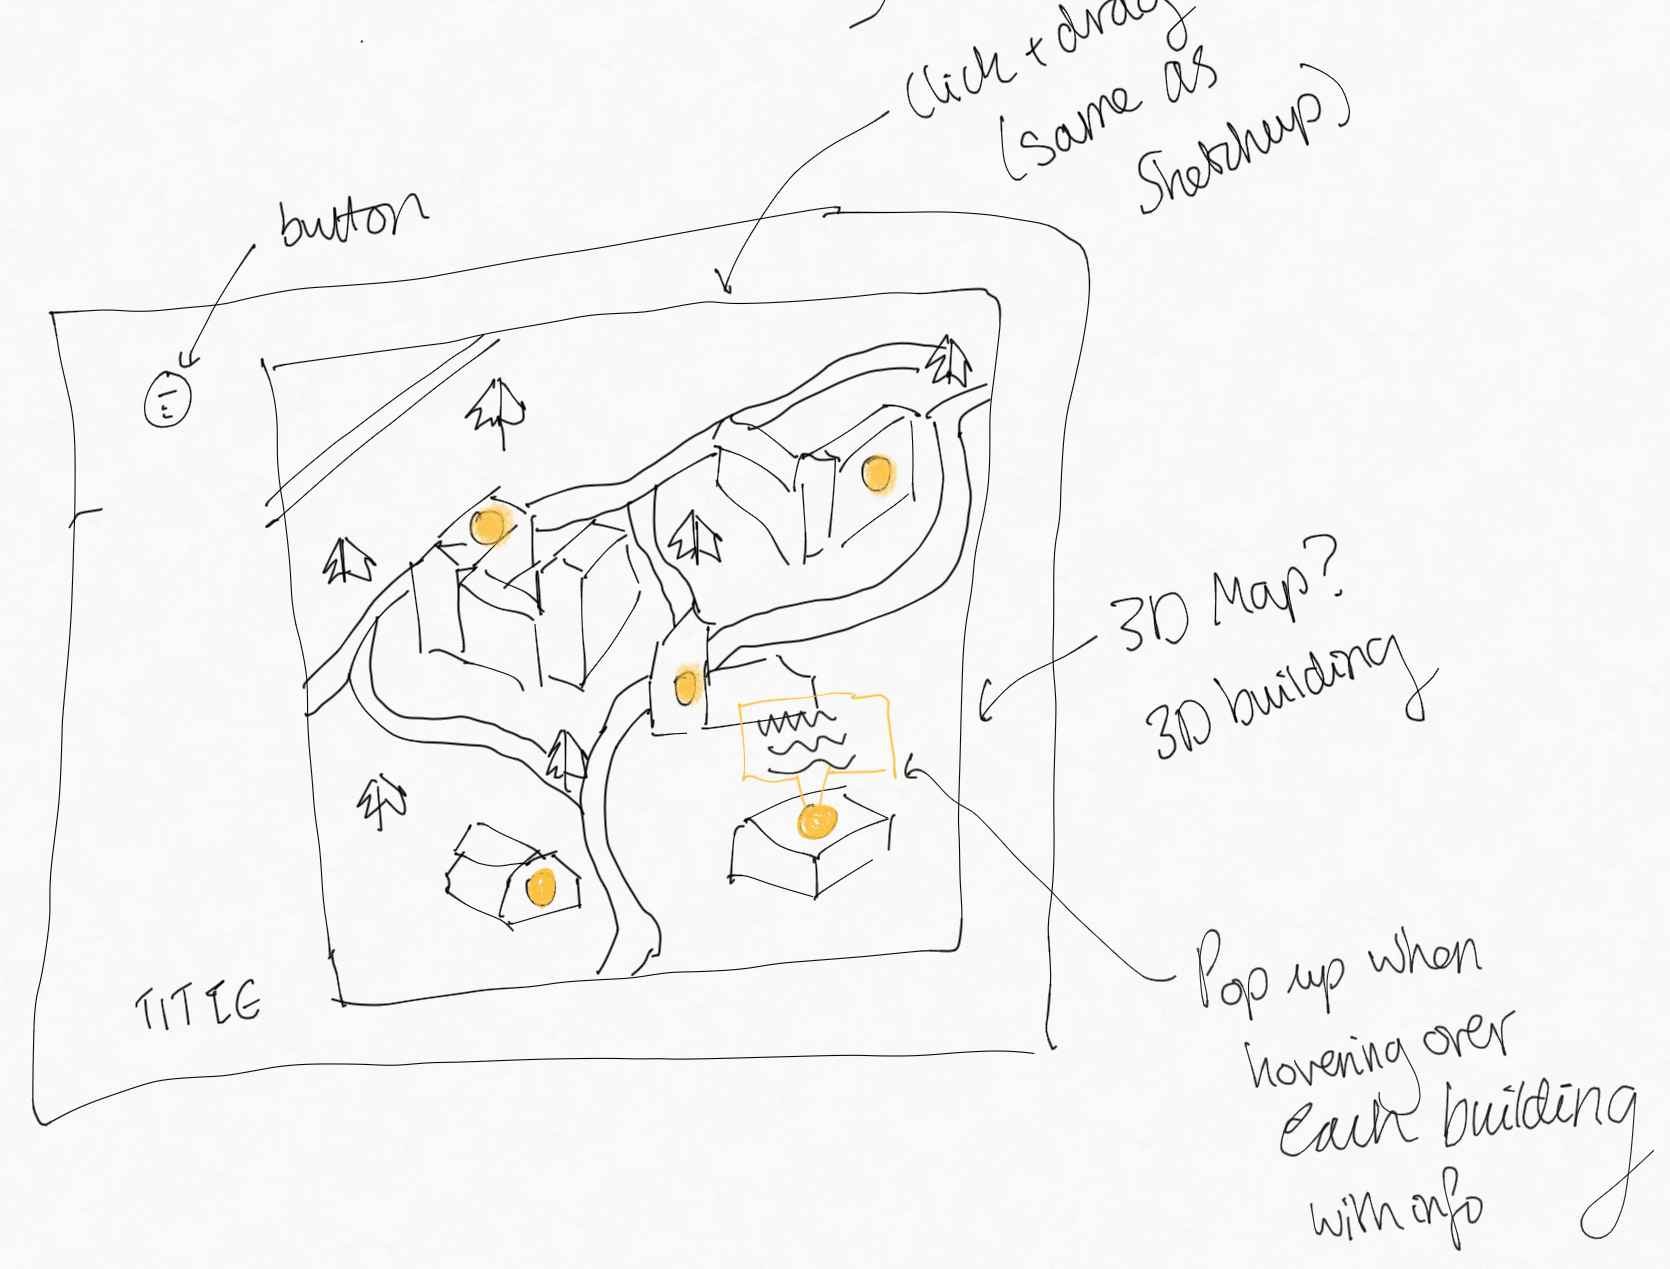 Click + drag
(same as
Sketchup)
button
3D Map?
3D building
TITLE
Pop up when
hovering over
each building
with info